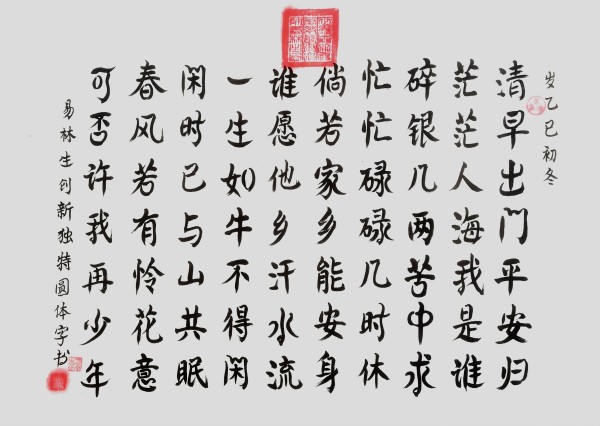 岁乙巳初冬
清早出门平安归
茫茫人海我是谁
碎银几两苦中求
忙忙碌碌几时休
倘若家乡能安身
谁愿他乡汗水流
一生如牛不得闲
闲时已与山共眠
春风若有怜花意
可否许我再少年
易林生创新独特圆体字书